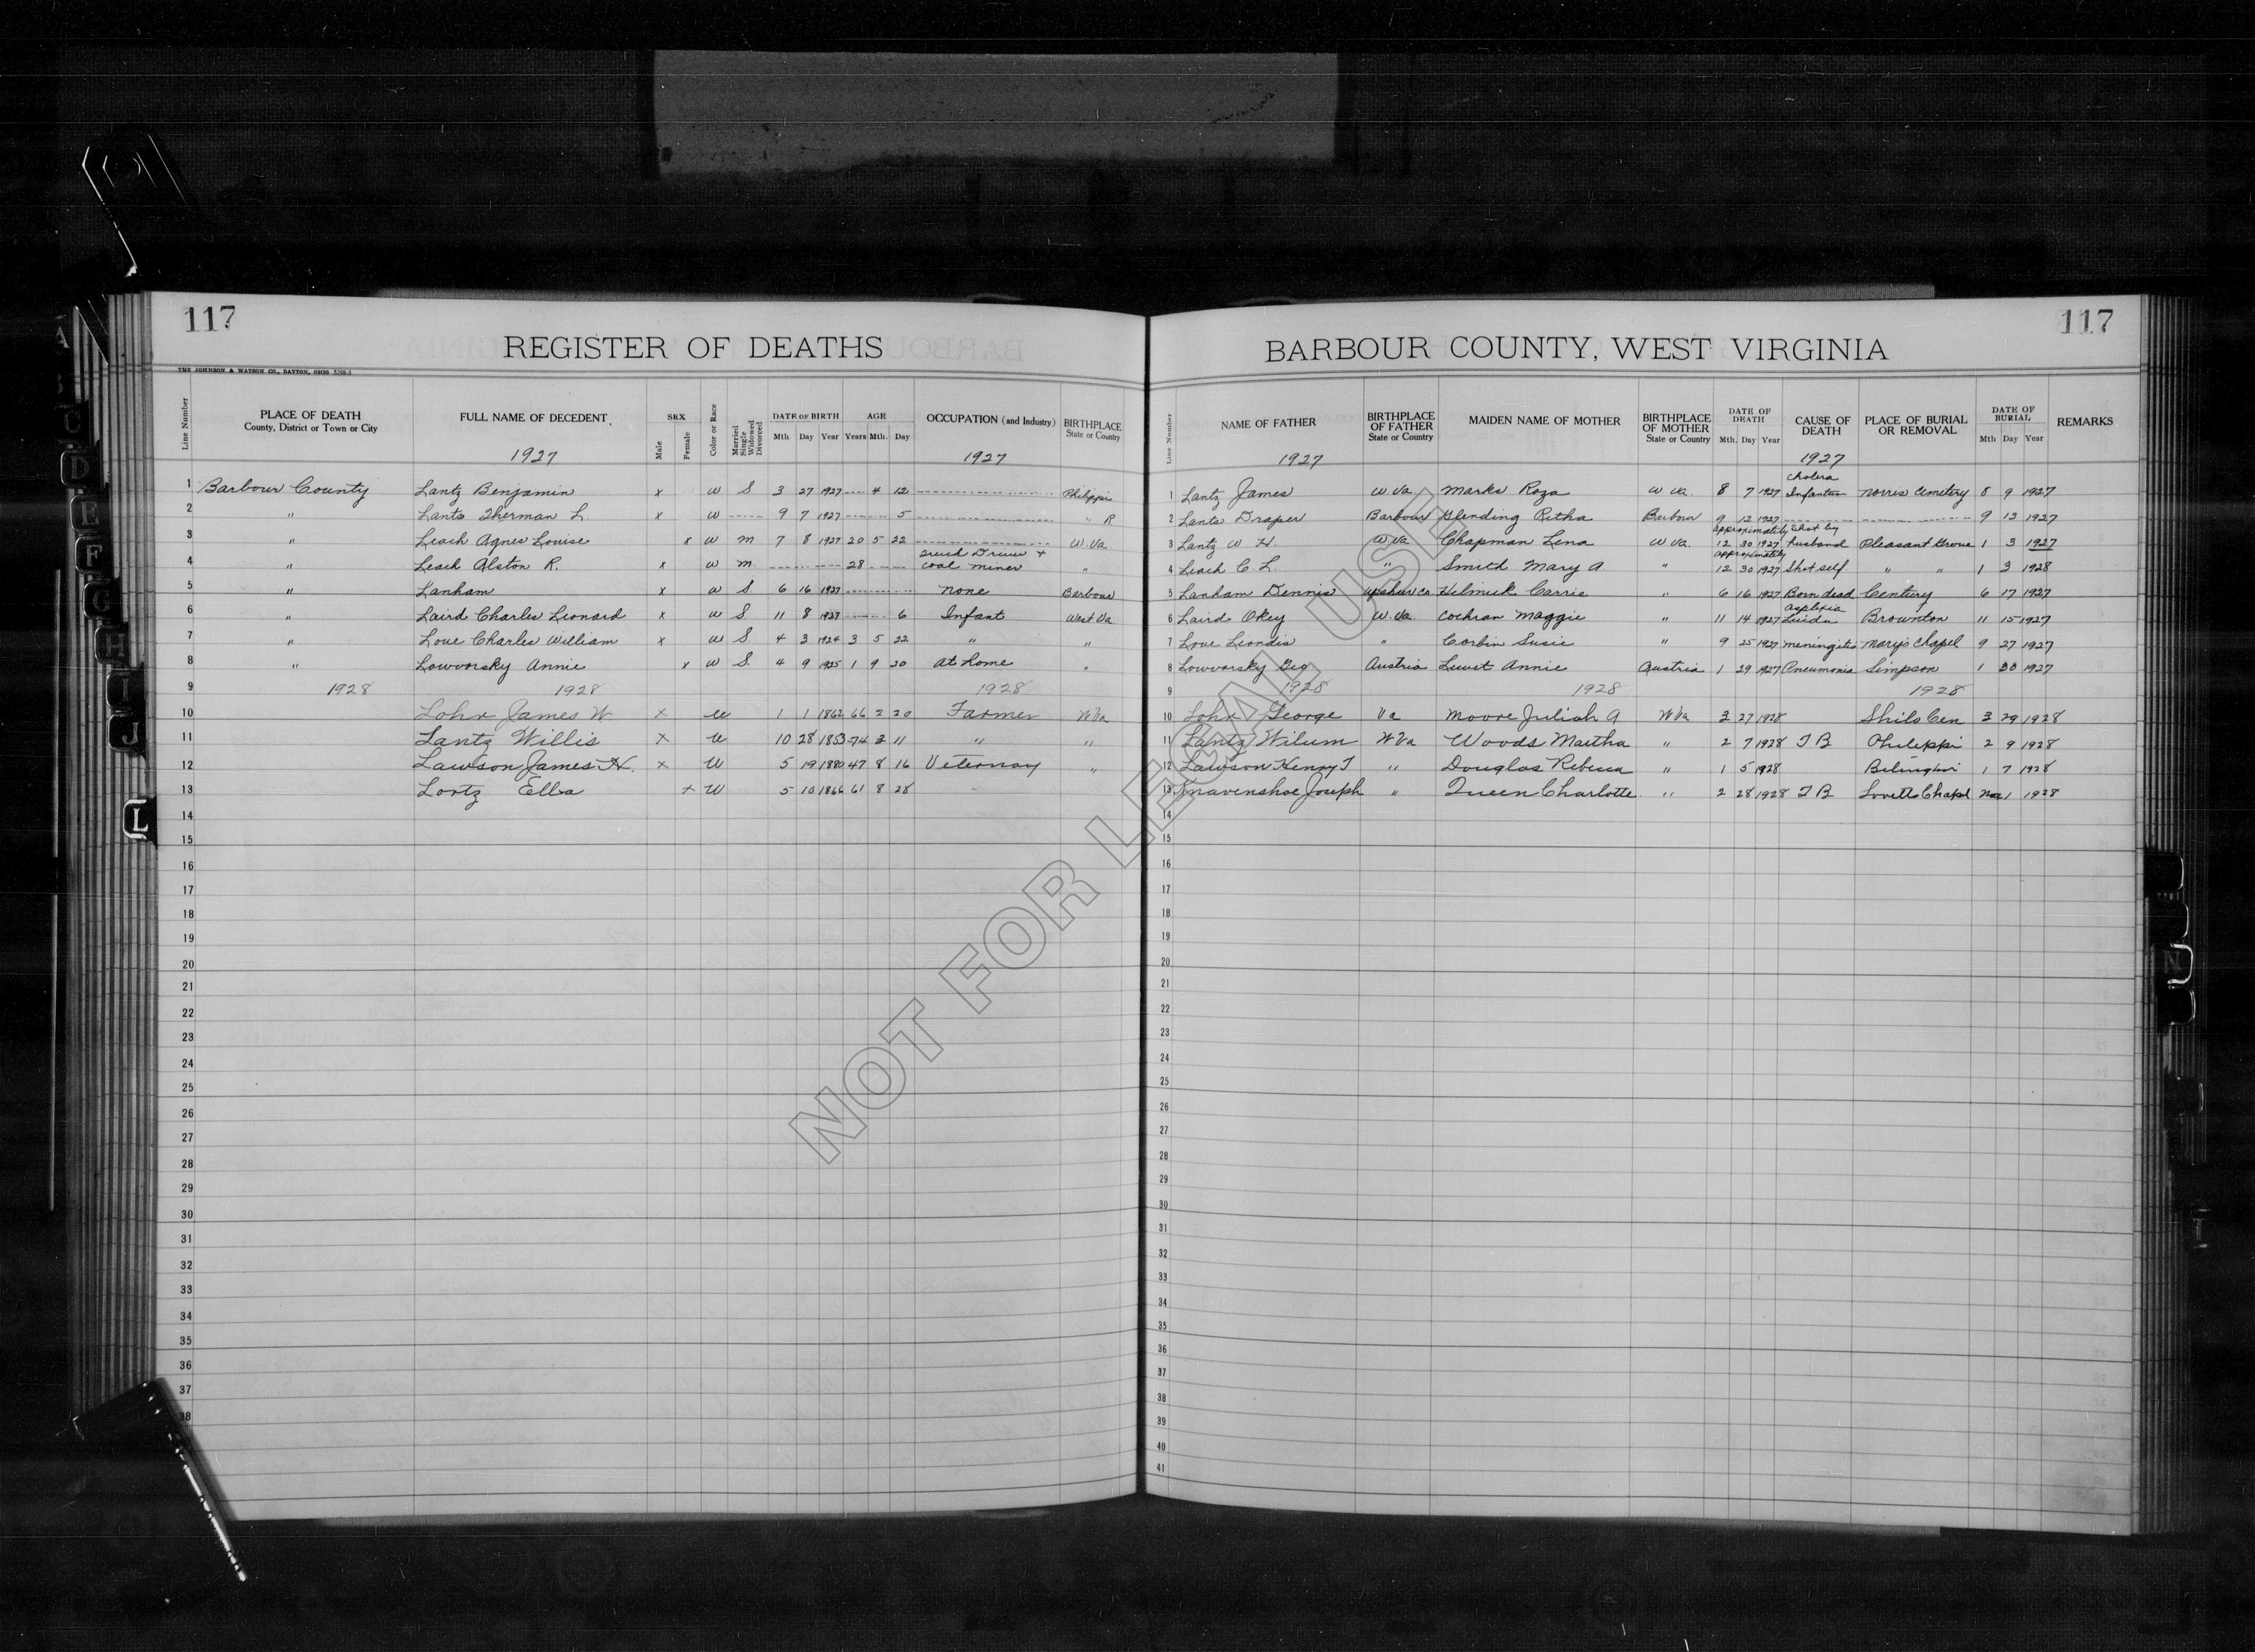 117
REGISTER OF DEATHS
THE JOHNSON & WATSON CO., DAYTON, OHIO
Line Number
PLACE OF DEATH
County, District or Town or City
FULL NAME OF DECEDENT
1927
SEX
Male
Female
Color or Race
Married
Single
Widowed
Divorced
DATE OF BIRTH
Mth Day Year
AGE
Years Mth. Day
OCCUPATION (and Industry)
1927
BIRTHPLACE
State or Country
1 Barbour County Lantz Benjamin x W S 3 27 1927 4 12 Philippi
2 " Lantz Therman L x W 9 7 1927 5 " R
3 " Leach Agnes Louise x W m 7 8 1927 20 5 22 W.Va.
4 " Leach Alston R. x W m. 28 Truck Driver + coal miner "
5 " Lanham x W S 6 16 1927 none Barbour
6 " Laird Charles Leonard x W S 11 8 1927 6 Infant West Va
7 " Love Charles William x W S. 4 3 1924 3 5 22 " "
8 " Lowvorsky Annie x W S. 4 9 1925 1 9 20 at home "
9 1928 1928 1928
10 Lohr James W x W 1 1 1862 66 2 20 Farmer W Va
11 Lantz Willis x W 10 28 1853 74 3 11 " "
12 Lawson James N. x W 5 19 1880 47 8 16 Veternary "
13 Lortz Ella x W 5 10 1866 61 8 28 -
14
15
16
17
18
19
20
21
22
23
24
25
26
27
28
29
30
31
32
33
34
35
36
37
38
117
BARBOUR COUNTY, WEST VIRGINIA
Line Number
NAME OF FATHER
1927
BIRTHPLACE
OF FATHER
State or Country
MAIDEN NAME OF MOTHER
BIRTHPLACE
OF MOTHER
State or Country
DATE OF
DEATH
Mth. Day Year
CAUSE OF
DEATH
1927
PLACE OF BURIAL
OR REMOVAL
DATE OF
BURIAL
Mth Day Year
REMARKS
1 Lantz James W Va. Marks Roza W Va. 8 7 1927 cholera Infantum Norris Cemetery 8 9 1927
2 Lantz Draper Barbour Glending Ritha Barbour 9 12 1927 9 13 1927
3 Lantz W H. W Va Chapman Lena W Va. approximately 12 30 1927 Shot by husband Pleasant Grove 1 3 1927
4 Leach C. L. " Smith Mary A " approximately 12 30 1927 Shot self " " 1 3 1928
5 Lanham Dennis Upshur Co Helmick Carrie " 6 16 1927 Born dead Century 6 17 1927
6 Laird Okey W. Va. Cochran Maggie " 11 14 1927 Brownton 11 15 1927
7 Love Leondis " Corbin Susie " 9 25 1927 meningitis Mary's Chapel 9 27 1927
8 Lowvorsky Geo Austria Luvet Annie Austria 1 29 1927 Pneumonia Simpson 1 30 1927
9 1928 1928 1928
10 Lohr George Va Moore Juliah A W Va 3 27 1928 Shilo Cem 3 29 1928
11 Lantz Wilum W Va Woods Martha " 2 7 1928 T B Philippi 2 9 1928
12 Lawson Henry T " Douglas Rebecca " 1 5 1928 Belington 1 7 1928
13 Knavenshoe Joseph " Queen Charlotte " 2 28 1928 T B Lovetts Chapel 1 1928
14
15
16
17
18
19
20
21
22
23
24
25
26
27
28
29
30
31
32
33
34
35
36
37
38
39
40
41
NOT FOR LEGAL USE
A
C
D
E
F
G
H
I
J
L
N